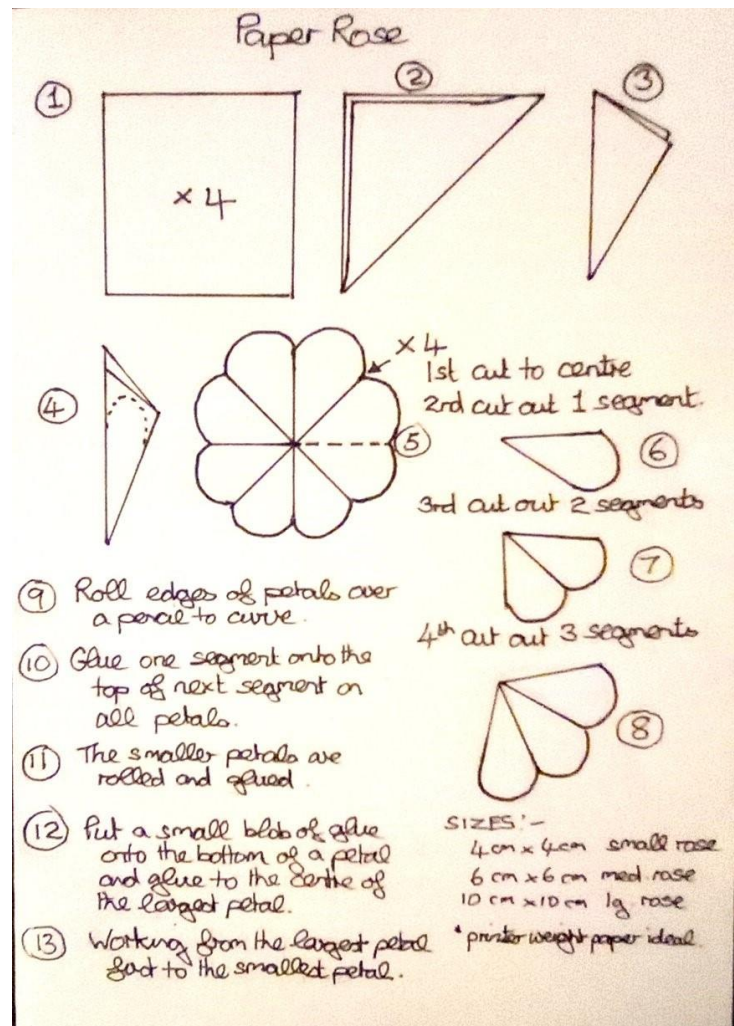 Paper Rose
1
2
3
× 4
4
× 4
1st cut to centre
2nd cut out 1 segment.
5
6
3rd cut out 2 segments
7
4th cut out 3 segments
8
9 Roll edges of petals over
a pencil to curve.
10 Glue one segment onto the
top of next segment on
all petals.
11 The smaller petals are
rolled and glued.
12 Put a small blob of glue
onto the bottom of a petal
and glue to the centre of
the largest petal.
13 Working from the largest petal
to the smallest petal.
SIZES:-
4cm x 4cm small rose
6cm x 6cm med. rose
10cm x 10cm lg. rose
* printer weight paper ideal.